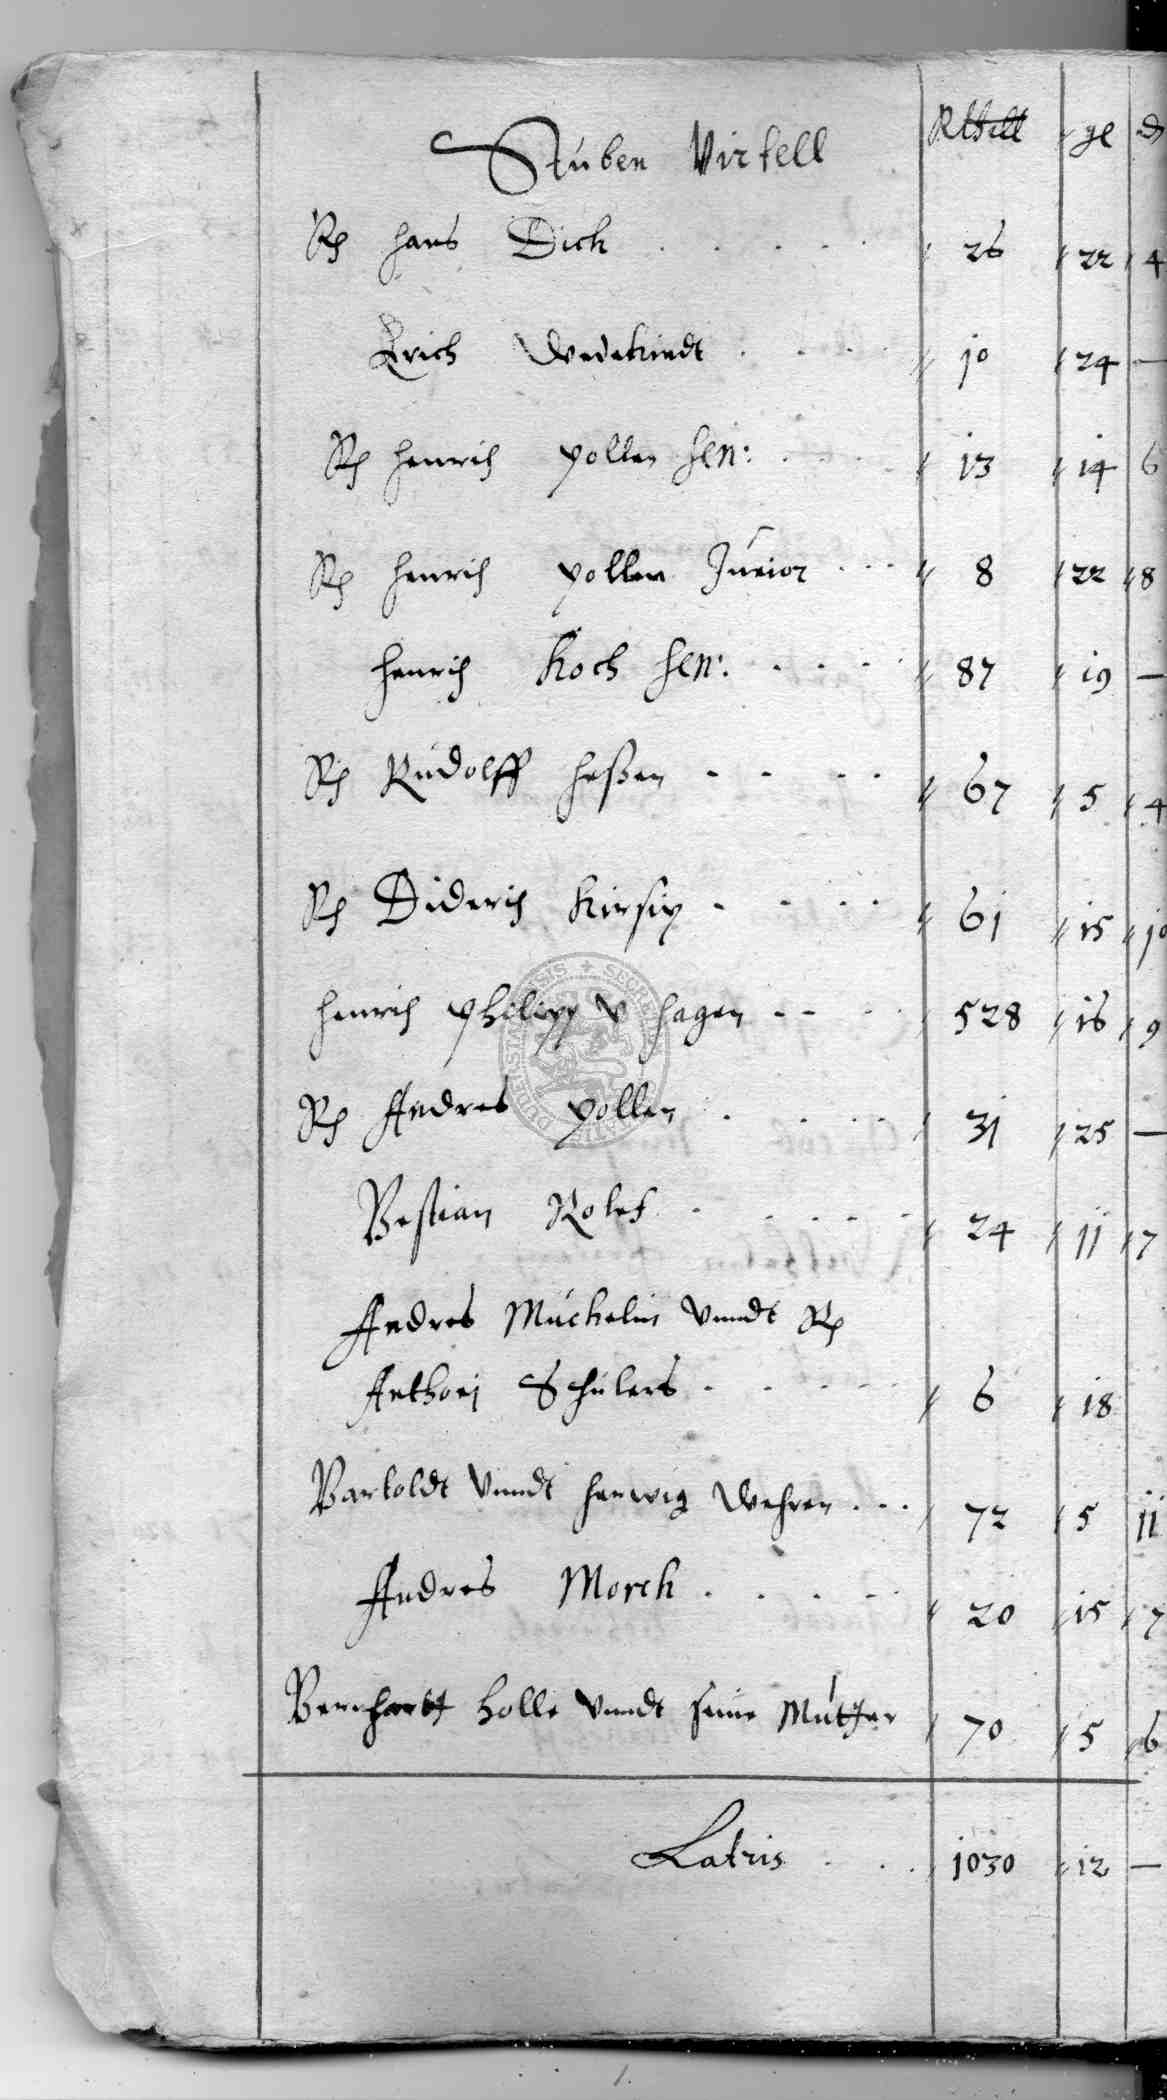 Stuben Virtell Rthll gl d
Rh hans Dick . . . . . 26 22 4
Erich Wedekindt . . . . 10 24 —
Rh henrich pollen sen: . . . . 13 14 6
Rh henrich pollen Junior . . . 8 22 8
henrich Koch sen: . . . . 87 19 —
Rh Rudolff heßen . . . . 67 5 4
Rh Diderich Kirsig . . . . 61 15 10
henrich Philipp v hagen . . . . 528 16 9
Rh Andres pollen . . . . 31 25 —
Bestian Rolef . . . . . 24 11 7
Andres Muchelin Vnndt Rh
Anthonj Schulers . . . . . 6 18
Bartoldt Vnndt herwig Wehren . . . 72 5 11
Andres Morch . . . . . 20 15 7
Bernhartt Holle Vnndt seine Mutter 70 5 6
Latris . . . 1030 12 —